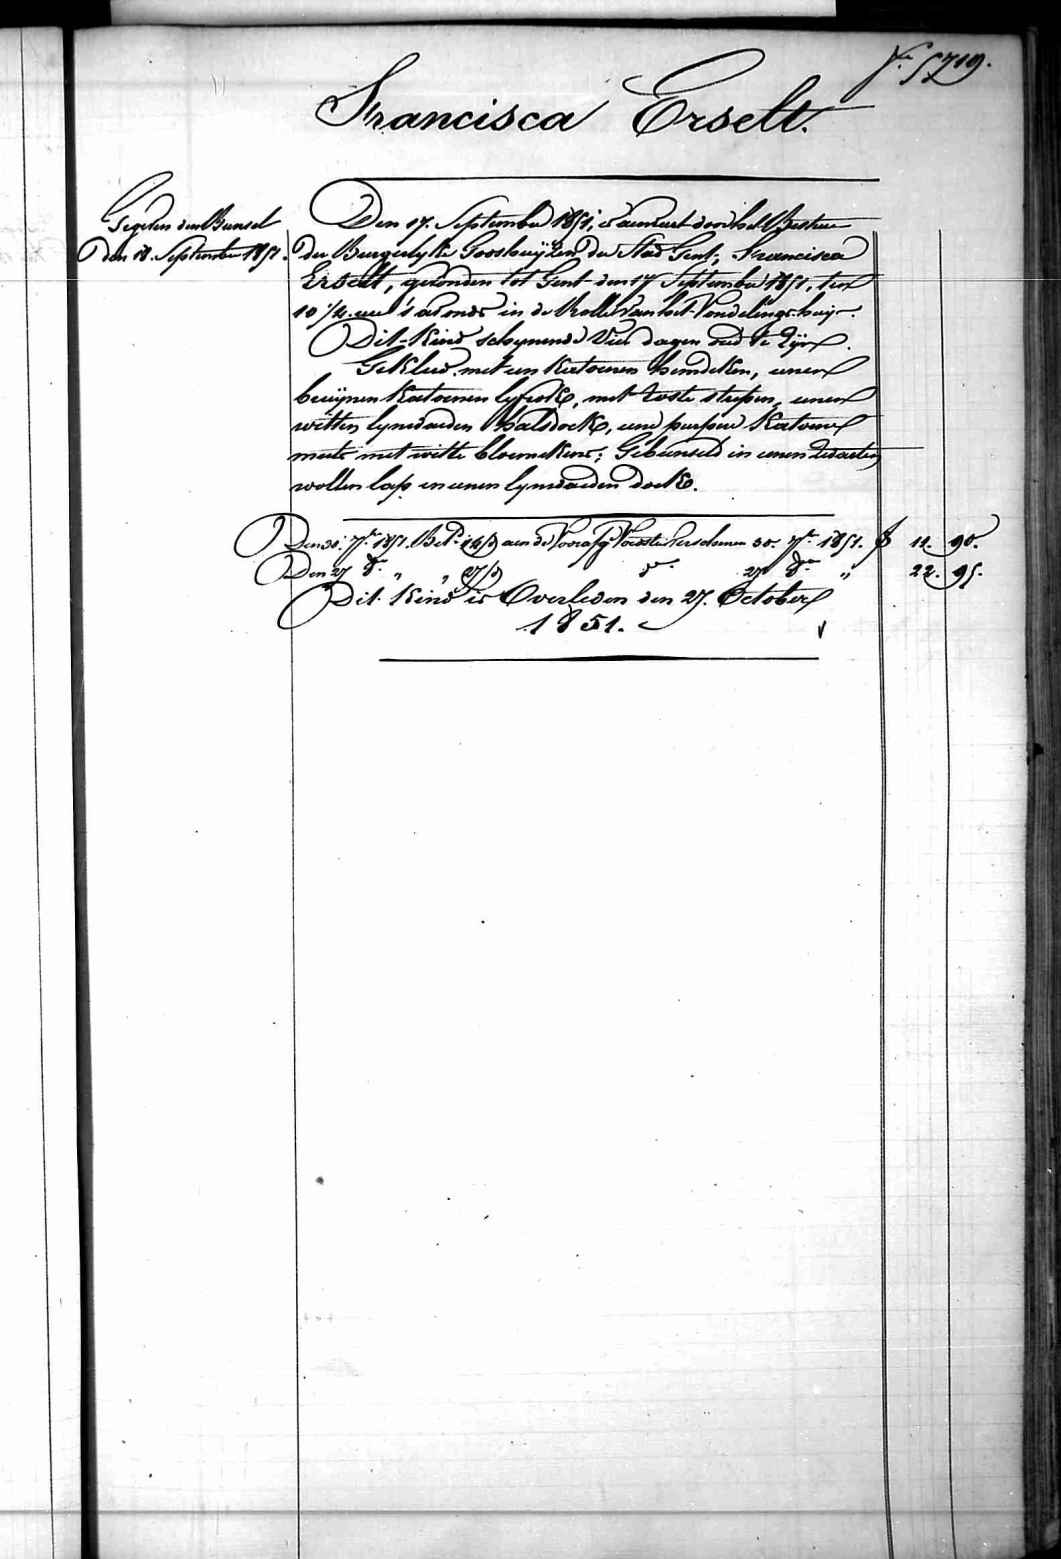 f.º 5719.
Francisca Erselt.
Gegeven den Bunsel
den 18. September 1851.
Den 17. September 1851, is aenveert door het Bestuer
der Burgerlyke Godshuijzen der Stad Gent, Francisca
Erselt, gevonden tot Gent den 17 September 1851, ten
10 1/2 ure 's avonds in de Rolle van het Vondelings-huijs.
Dit Kind schynende Vier dagen oud te zijn.
Gekleed met een Katoenen hemdeken, eenen
bruijnen Katoenen lyfrok, met roste strepen, eenen
witten lynwaeden halsdoek, eene purpere Katoene
muts met witte bloemekens; Gebunseld in eenen zwarten
wollen lap en eenen lynwaeden doek.
Den 30. 7.bre 1851. Bet.d aen de Voedster verschenen 30. 7.bre 1851. f 11. 90.
Den 27 d.o " " d.o 27 d.o " 22. 95.
Dit Kind is Overleden den 27. October
1851.